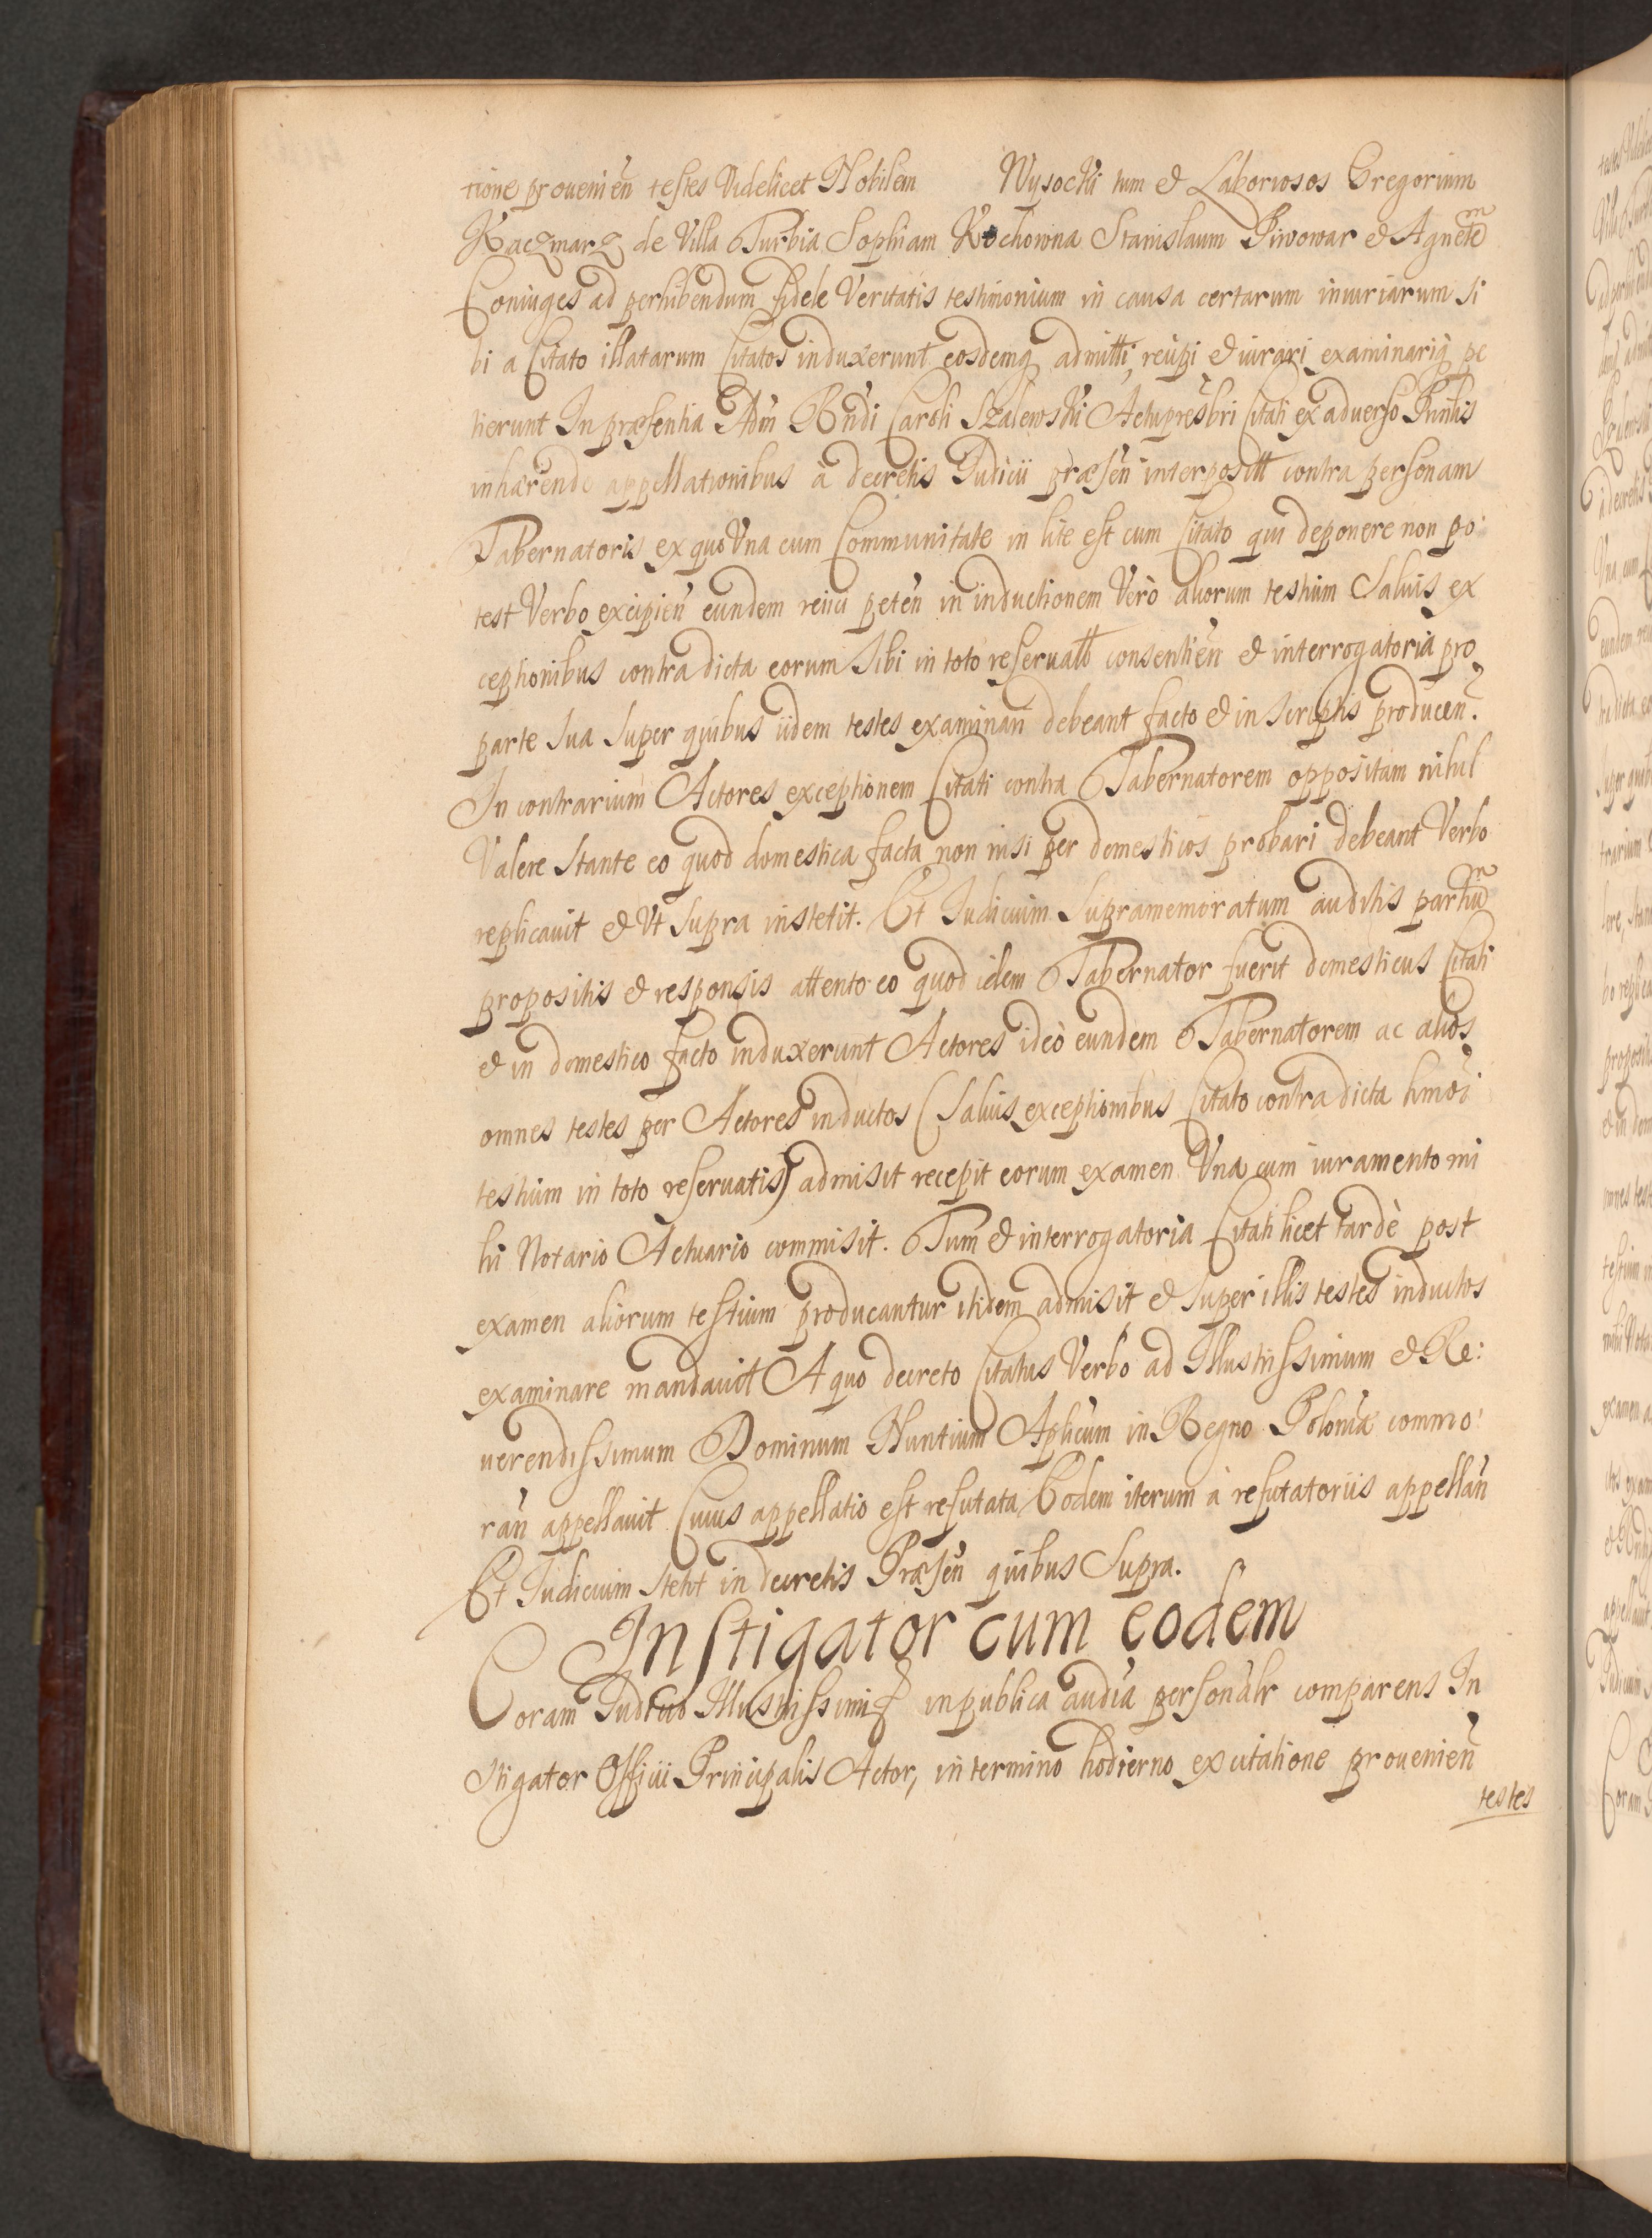 tione prouenien̄ testes Videlicet Nobilem Wysocki tum et Laboriosos Gregorium
Kaczmarz de Villa Turbia Sophiam Kochowna Stanislaum Piwowar et Agnetem
Coniuges ad perhibendum fidele Veritatis testimonium in causa certarum iniuriarum si
bi a Citato illatarum Citatos induxerunt eosdemq admitti, recipi et iurari examinariq pe
tierunt In præsentia Adm Rndi Caroli Szalewski Actu præsbri Citati ex aduerso Prin̄tis
inhærendo appellationibus à decretis Iudicii præsen̄ interpositt contra personam
Tabernatoris ex quo Vna cum Communitate in lite est cum Citato qui deponere non po
test Verbo excipien̄ eundem reiici peten̄ in inductionem Verò aliorum testium Saluis ex
ceptionibus contra dicta eorum Sibi in toto reseruatt consentien̄ et interrogatoria pro
parte sua super quibus iidem testes examinari debeant facto et in scriptis producen̄.
In contrarium Actores exceptionem Citati contra Tabernatorem oppositam nihil
Valere stante eo quod domestica facta non nisi per domesticos probari debeant Verbo
replicauit et Vt supra instetit. Et Iudicium Supramemoratum auditis partium
propositis et responsis attento eo quod idem Tabernator fuerit domesticus Citati
et in domestico facto induxerunt Actores ideò eundem Tabernatorem ac alios
omnes testes per Actores inductos (Saluis exceptionibus Citato contra dicta hmōi
testium in toto reseruatis) admisit recepit eorum examen Vna cum iuramento mi
hi Notario Actuario commisit. Tum et interrogatoria Citati licet tardè post
examen aliorum testium producantur itidem admisit et super illis testes inductos
examinare mandauit A quo decreto Citatus Verbo ad Illustrissimum et Re:
uerendissimum Dominum Nuntium Aplicum in Regno Poloniæ commo
ran̄ appellauit Cuius appellatio est refutata Eodem iterum à refutatoriis appellan̄
Et Iudicium stetit in decretis Præsen̄ quibus Supra.
Instigator cum eodem
Coram Iudicio Illustrissimi in publica audīa personalr comparens In
stigator Officii Principalis Actor, in termino hodierno ex citatione prouenien̄
testes